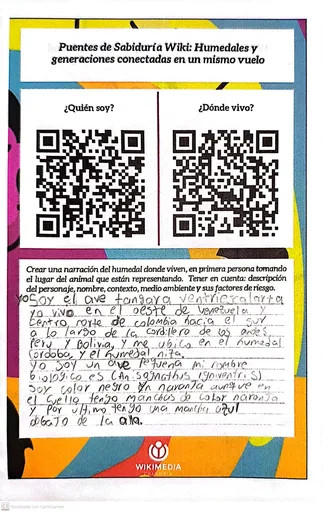 Puentes de Sabiduría Wiki: Humedales y
generaciones conectadas en un mismo vuelo
¿Quién soy?
¿Dónde vivo?
Crear una narración del humedal donde viven, en primera persona tomando
el lugar del animal que están representando. Tener en cuenta: descripción
del personaje, nombre, contexto, medio ambiente y sus factores de riesgo.
yo soy el ave tangara ventriescalarta
yo vivo en el oeste de venezuela y
centro, norte de colombia hacia el sur
a lo largo de la cordillera de los andes,
Peru y Bolivia, y me ubico en el humedal
cordoba y el humedal
yo soy un ave pequeña mi nombre
biologico es
Soy color negro y naranja aunque en
el cuello tengo manchas de color naranja
y por ultimo tengo una mancha azul
debajo de la ala.
WIKIMEDIA
COLOMBIA
CS